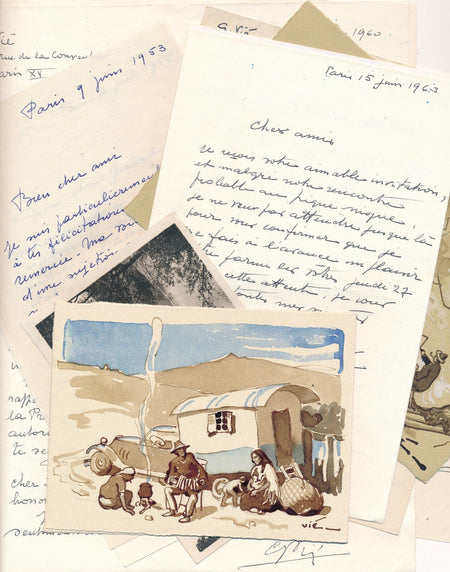 G. Vié
1960
Vié
rue de la Convent
Paris XV
Paris 9 juin 1953
Bien cher ami
Je suis particulièrement
à tes félicitations
remercie. Ma
d'une sujétion
Paris 15 juin 1963
Cher ami
Je reçois votre aimable invitation,
et malgré notre rencontre
probable au pique nique,
je ne veux pas attendre jusque là
pour vous confirmer que je
me fais à l'avance un plaisir
votre jeudi 27
cette attente, je vous
toutes mes
la Pr
autori
te se
cher
honor
sentiment
VIÉ